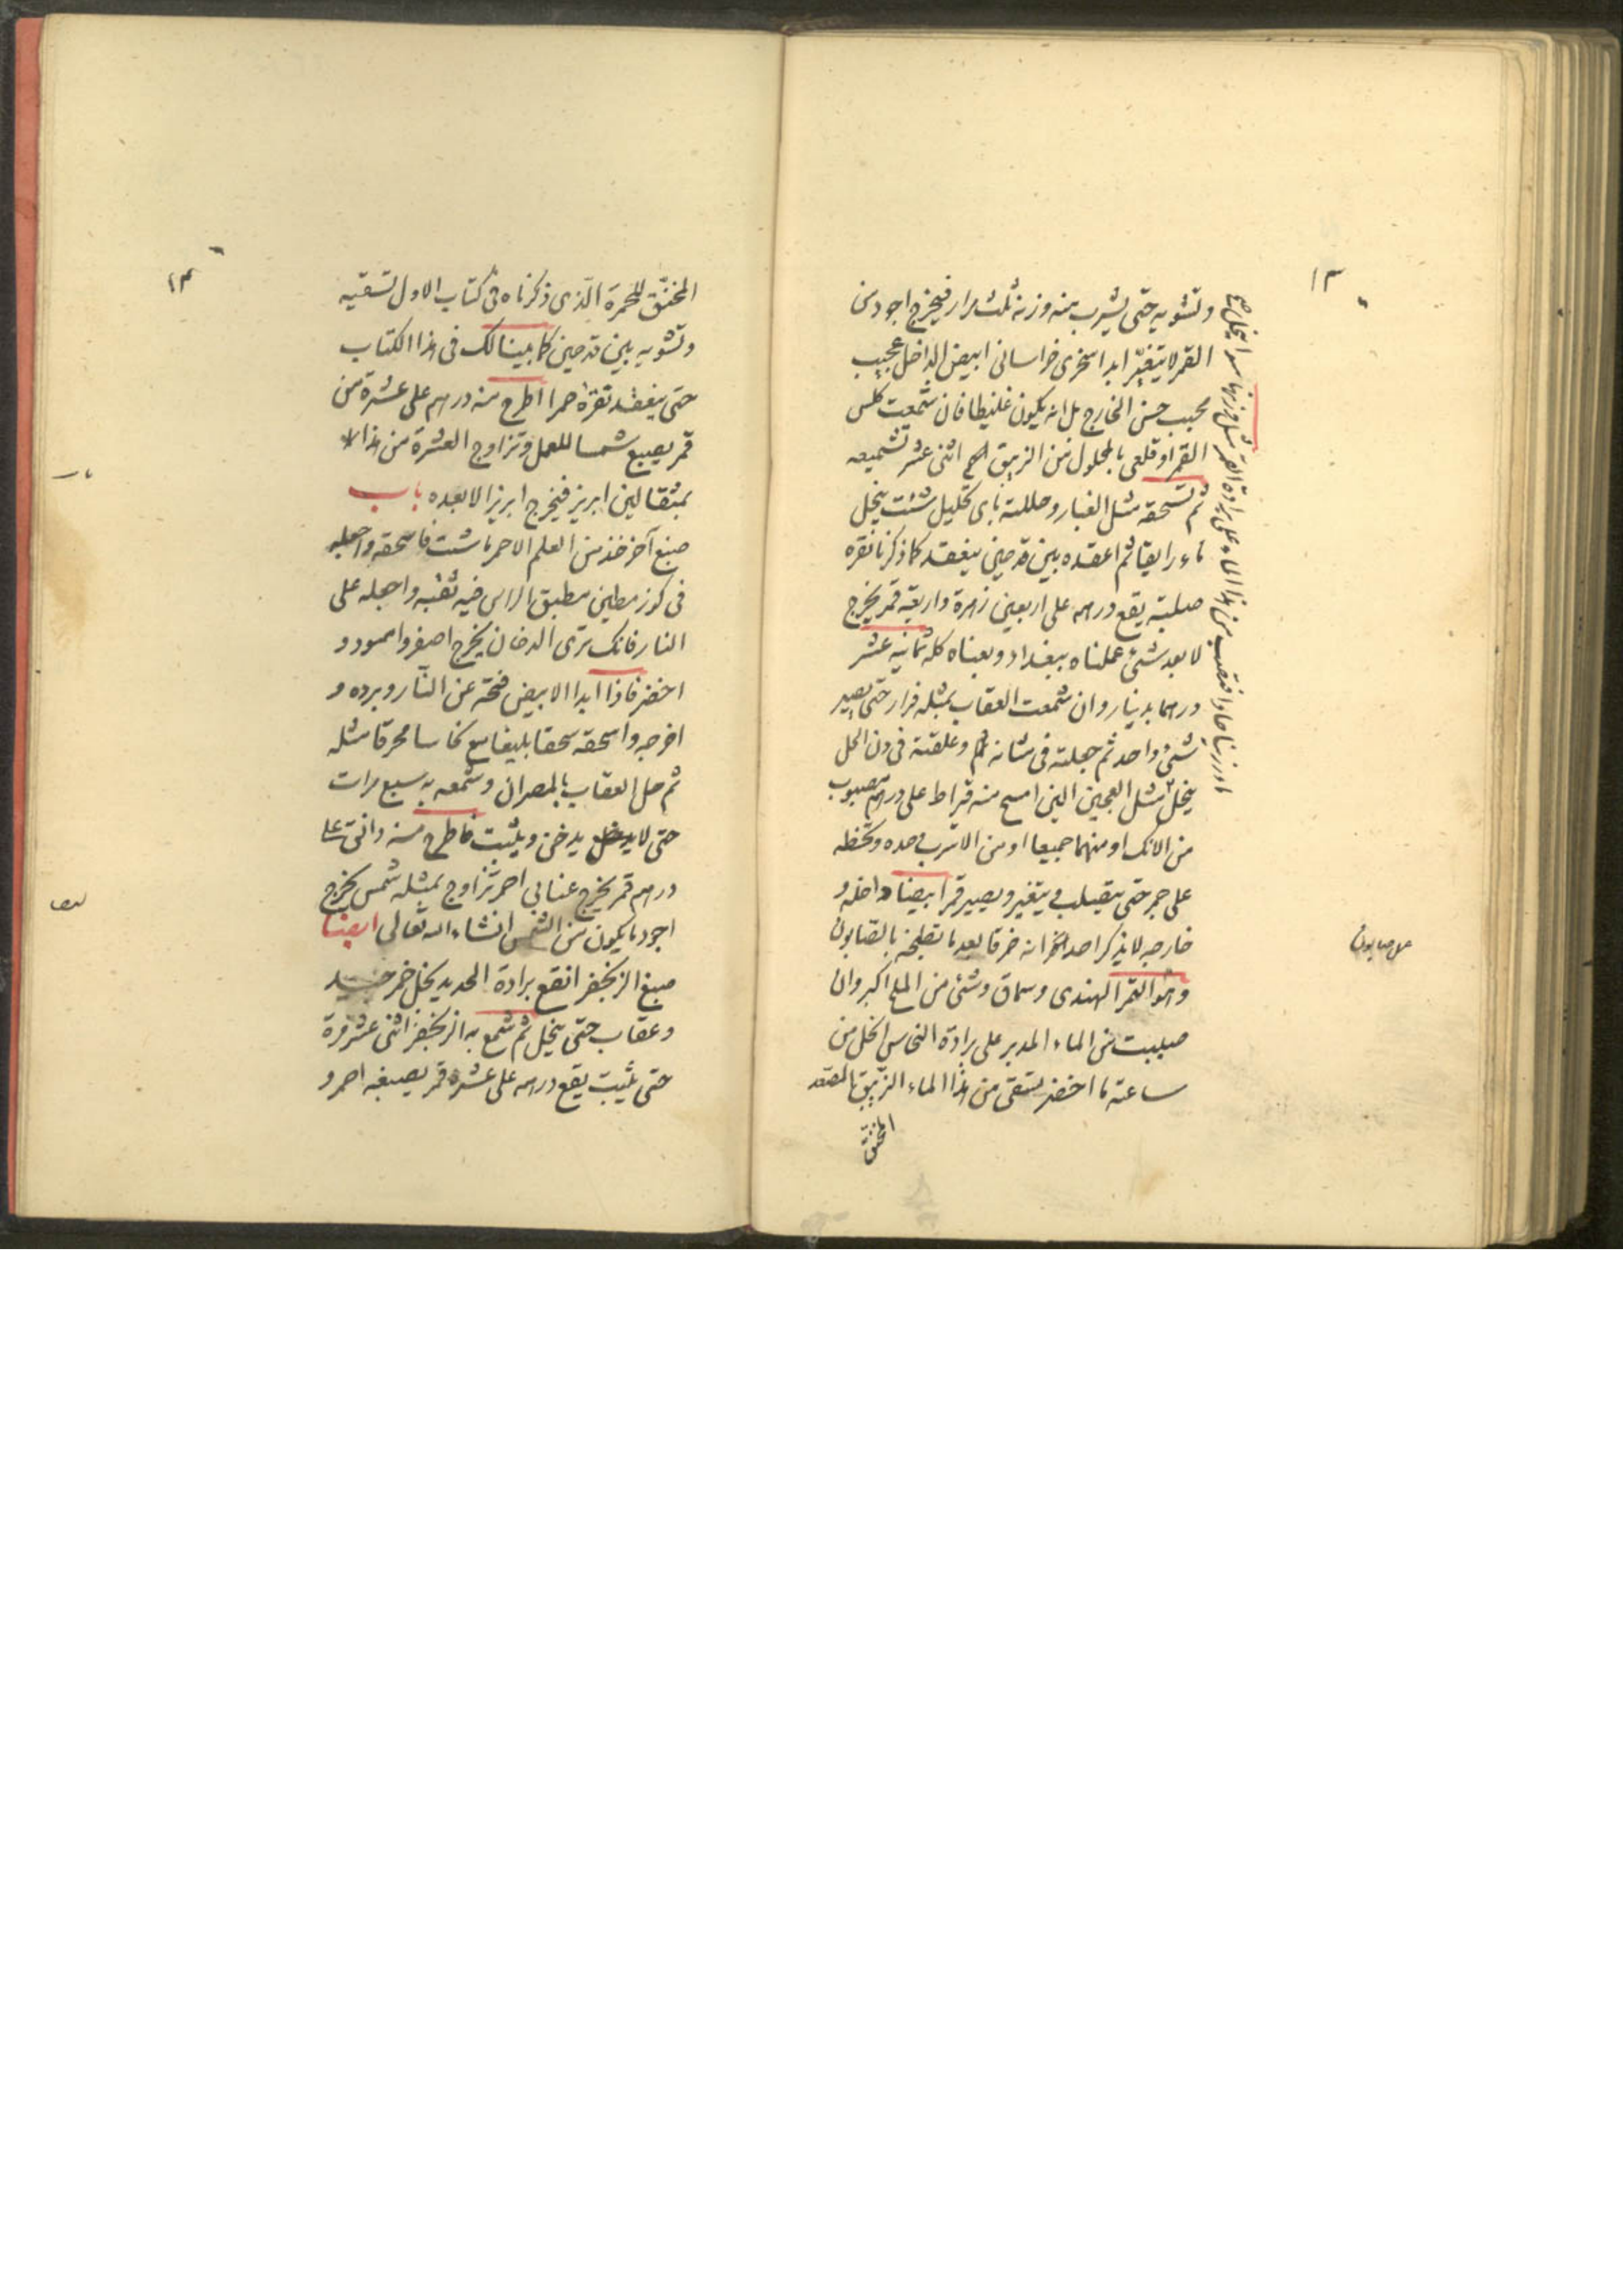 ١٣
وتشويه حتى يشرب منه وزنه ثلث مرار فيخرج اجود من
القمر لا يتغير ابدا سخرى خراسانى ابيض الداخل عجيب
محبب حسن الخارج بل انه يكون غليظا فان شمعت كلس
القمر او قلعى بالمحلول من الزيبق اثنى عشر تشميعه
ثم تسحقه مثل الغبار وحللته باى تحليل شئت ينحل
ماء رايقا ثم اعقده بين قدحين ينعقد كما ذكرنا نقره
صلبة يقع درهمه على اربعين زهرة واربعة قمر يخرج
لا بعد شئ عملناه ببغداد وبعناه كله ثمانية عشر
درهما بدينار وان شمعت العقاب بمثله فرار حتى يصير
شئ واحد ثم جعلته فى مثانه وعلقته فى دن الخل
ينحل مثل العجين الين امسح منه قراط على درهم مصبوب
من الانك او منهما جميعا او من الاسرب وحده وتحطه
على جمر حتى يتصلب ويتغير ويصير قمرا ابيضا داخله و
خارجه لا يذكر احد انه خرقا بعد ما تطبخه بالصابون
وهو التمر الهندى وسماق وشئ من الملح اكبر وان
صببت من الماء المدبر على برادة النحاس انحل من
ساعته ماء اخضر يستقى من هذا الماء الزيبق المصعد
المخنق
ماء صابون
١٤
المخنق للحمرة الذى ذكرناه فى كتاب الاول تسقيه
وتشويه بين قدحين كما بينا لك فى هذا الكتاب
حتى ينعقد نقرة حمرا اطرح منه درهم على عشرة من
قمر يصبغ شمسا للعمل وتزاوج العشرة من هذا
بمثقالين ابريز فيخرج ابريز الا بعده باب
صبغ آخر خذ من العلم الاحمر ما شئت فاسحقه واجعله
فى كوز مطين مطبق الراس فيه ثقبه واجعله على
النار فانك ترى الدخان يخرج اصفر واسود و
اخضر فاذا ابدا الابيض فنحّه عن النار وبرده و
اخرجه واسحقه سحقا بليغا مع نحاسا محرقا مثله
ثم حل العقاب بالمصران وشمعه به سبع مرات
حتى لا يدخن ويثبت فاطرح منه دانق على
درهم قمر يخرج عنابى احمر تزاوج بمثله شمس يخرج
اجود ما يكون من الشمس انشاء الله تعالى ايضا
صبغ الزنجفر انقع برادة الحديد بخل خمر جيد
وعقاب حتى ينحل ثم شمع به الزنجفر اثنى عشر مرة
حتى يثبت يقع درهمه على عشرة قمر يصبغه احمر و